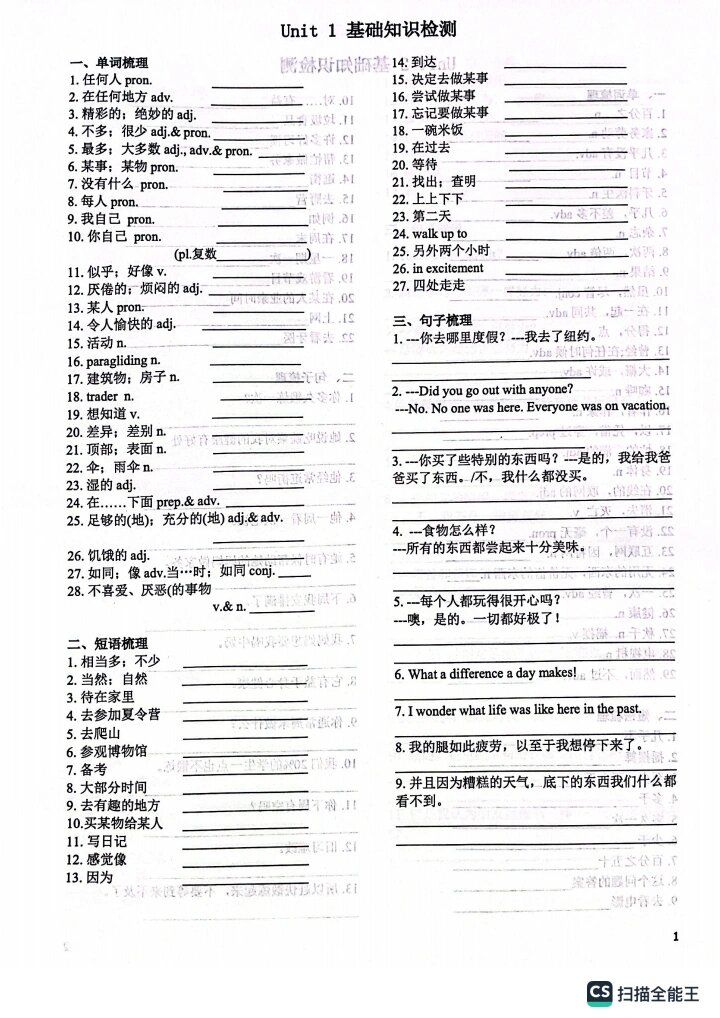 Unit 1 基础知识检测
一、单词梳理
1. 任何人 pron.
2. 在任何地方 adv.
3. 精彩的；绝妙的 adj.
4. 不多；很少 adj.& pron.
5. 最多；大多数 adj., adv.& pron.
6. 某事；某物 pron.
7. 没有什么 pron.
8. 每人 pron.
9. 我自己 pron.
10. 你自己 pron.
(pl.复数 )
11. 似乎；好像 v.
12. 厌倦的；烦闷的 adj.
13. 某人 pron.
14. 令人愉快的 adj.
15. 活动 n.
16. paragliding n.
17. 建筑物；房子 n.
18. trader n.
19. 想知道 v.
20. 差异；差别 n.
21. 顶部；表面 n.
22. 伞；雨伞 n.
23. 湿的 adj.
24. 在……下面 prep.& adv.
25. 足够的(地)；充分的(地) adj.& adv.
26. 饥饿的 adj.
27. 如同；像 adv.当…时；如同 conj.
28. 不喜爱、厌恶(的事物
v.& n.
二、短语梳理
1. 相当多；不少
2. 当然；自然
3. 待在家里
4. 去参加夏令营
5. 去爬山
6. 参观博物馆
7. 备考
8. 大部分时间
9. 去有趣的地方
10.买某物给某人
11. 写日记
12. 感觉像
13. 因为
14. 到达
15. 决定去做某事
16. 尝试做某事
17. 忘记要做某事
18. 一碗米饭
19. 在过去
20. 等待
21. 找出；查明
22. 上上下下
23. 第二天
24. walk up to
25. 另外两个小时
26. in excitement
27. 四处走走
三、句子梳理
1. ---你去哪里度假？---我去了纽约。
2. ---Did you go out with anyone?
---No. No one was here. Everyone was on vacation.
3. ---你买了些特别的东西吗？---是的，我给我爸
爸买了东西。/不，我什么都没买。
4. ---食物怎么样？
---所有的东西都尝起来十分美味。
5. ---每个人都玩得很开心吗？
---噢，是的。一切都好极了！
6. What a difference a day makes!
7. I wonder what life was like here in the past.
8. 我的腿如此疲劳，以至于我想停下来了。
9. 并且因为糟糕的天气，底下的东西我们什么都
看不到。
1
CS 扫描全能王